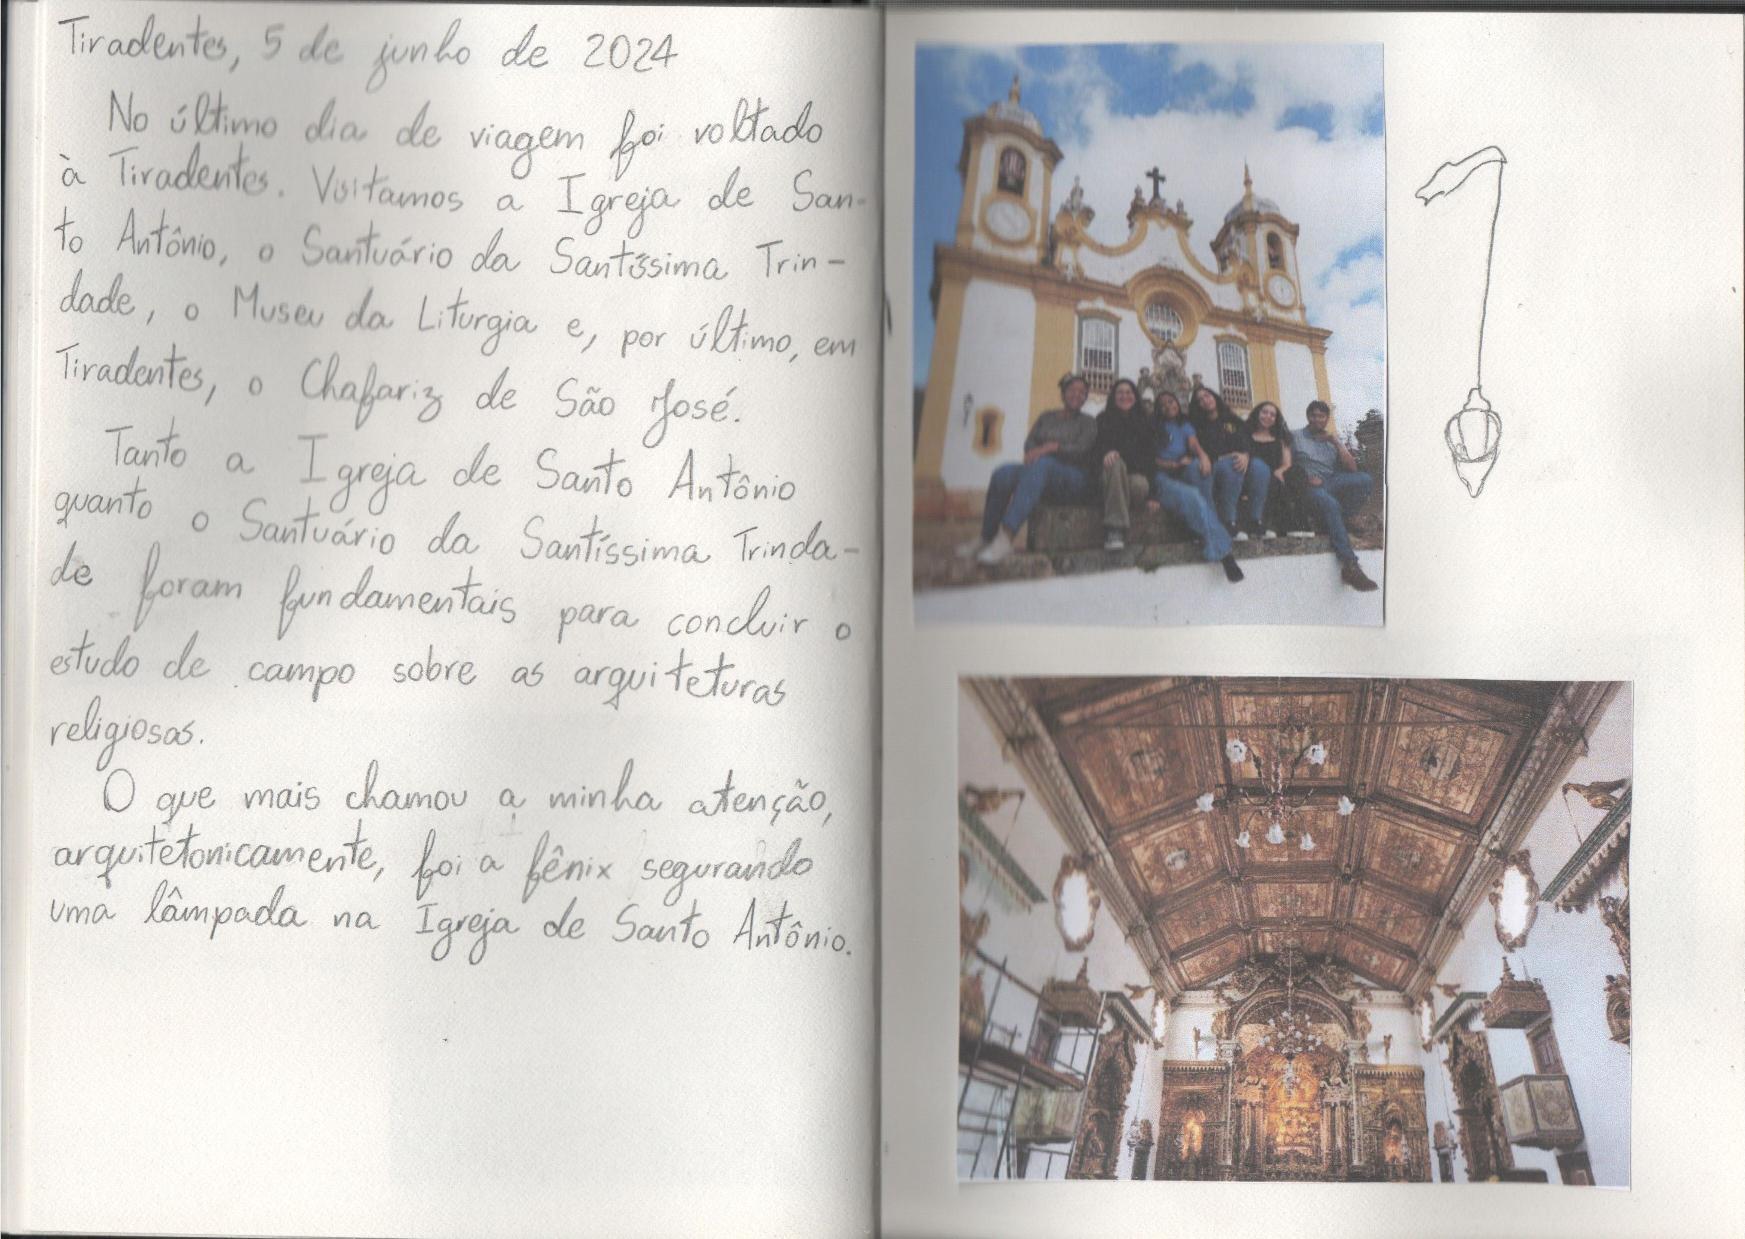 Tiradentes, 5 de junho de 2024
No último dia de viagem foi voltado
à Tiradentes. Visitamos a Igreja de San-
to Antônio, o Santuário da Santíssima Trin-
dade, o Museu da Liturgia e, por último, em
Tiradentes, o Chafariz de São José.
Tanto a Igreja de Santo Antônio
quanto o Santuário da Santíssima Trinda-
de foram fundamentais para concluir o
estudo de campo sobre as arquiteturas
religiosas.
O que mais chamou a minha atenção,
arquitetonicamente, foi a fênix segurando
uma lâmpada na Igreja de Santo Antônio.